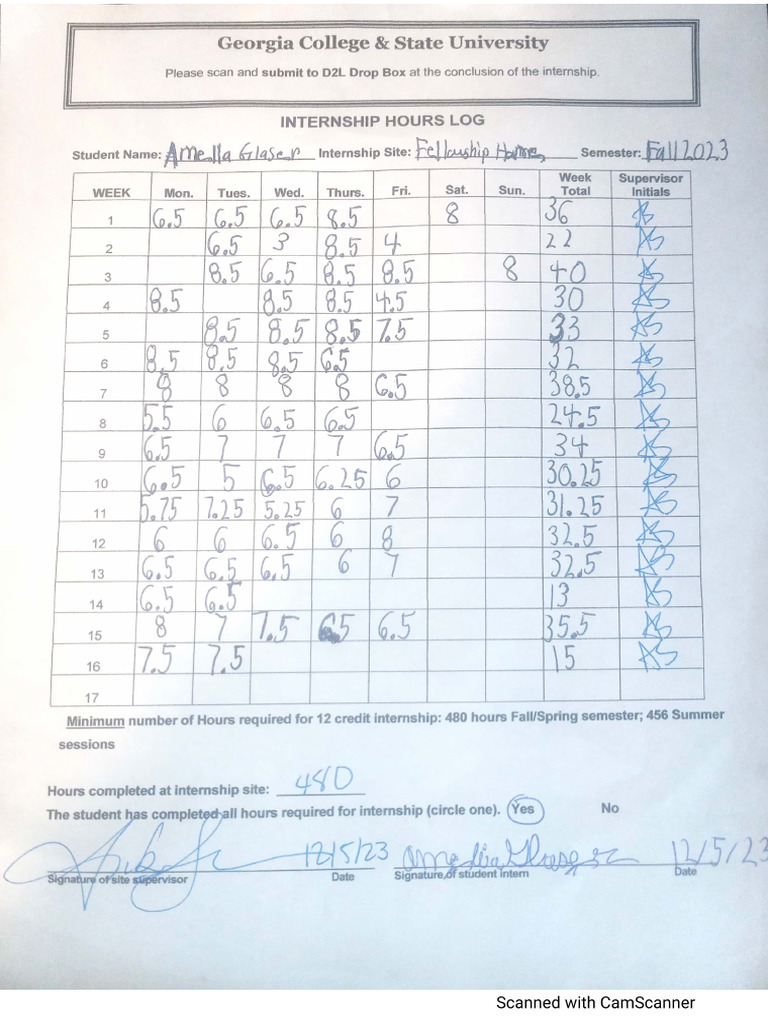 Georgia College & State University
Please scan and submit to D2L Drop Box at the conclusion of the internship.
INTERNSHIP HOURS LOG
Student Name: Amelia Glaser Internship Site: Fellowship Home Semester: Fall 2023
WEEK Mon. Tues. Wed. Thurs. Fri. Sat. Sun. Week Total Supervisor Initials
1 6.5 6.5 6.5 8.5 8 36 AS
2 6.5 3 8.5 4 22 AS
3 8.5 6.5 8.5 8.5 8 40 AS
4 8.5 8.5 8.5 4.5 30 AS
5 8.5 8.5 8.5 7.5 33 AS
6 8.5 8.5 8.5 6.5 32 AS
7 8 8 8 8 6.5 38.5 AS
8 5.5 6 6.5 6.5 24.5 AS
9 6.5 7 7 7 6.5 34 AS
10 6.5 5 6.5 6.25 6 30.25 AS
11 5.75 7.25 5.25 6 7 31.25 AS
12 6 6 6.5 6 8 32.5 AS
13 6.5 6.5 6.5 6 7 32.5 AS
14 6.5 6.5 13 AS
15 8 7 7.5 6.5 6.5 35.5 AS
16 7.5 7.5 15 AS
17
Minimum number of Hours required for 12 credit internship: 480 hours Fall/Spring semester; 456 Summer
sessions
Hours completed at internship site: 480
The student has completed all hours required for internship (circle one). Yes No
12/5/23 Amelia Glaser 12/5/23
Signature of site supervisor Date Signature of student intern Date
Scanned with CamScanner